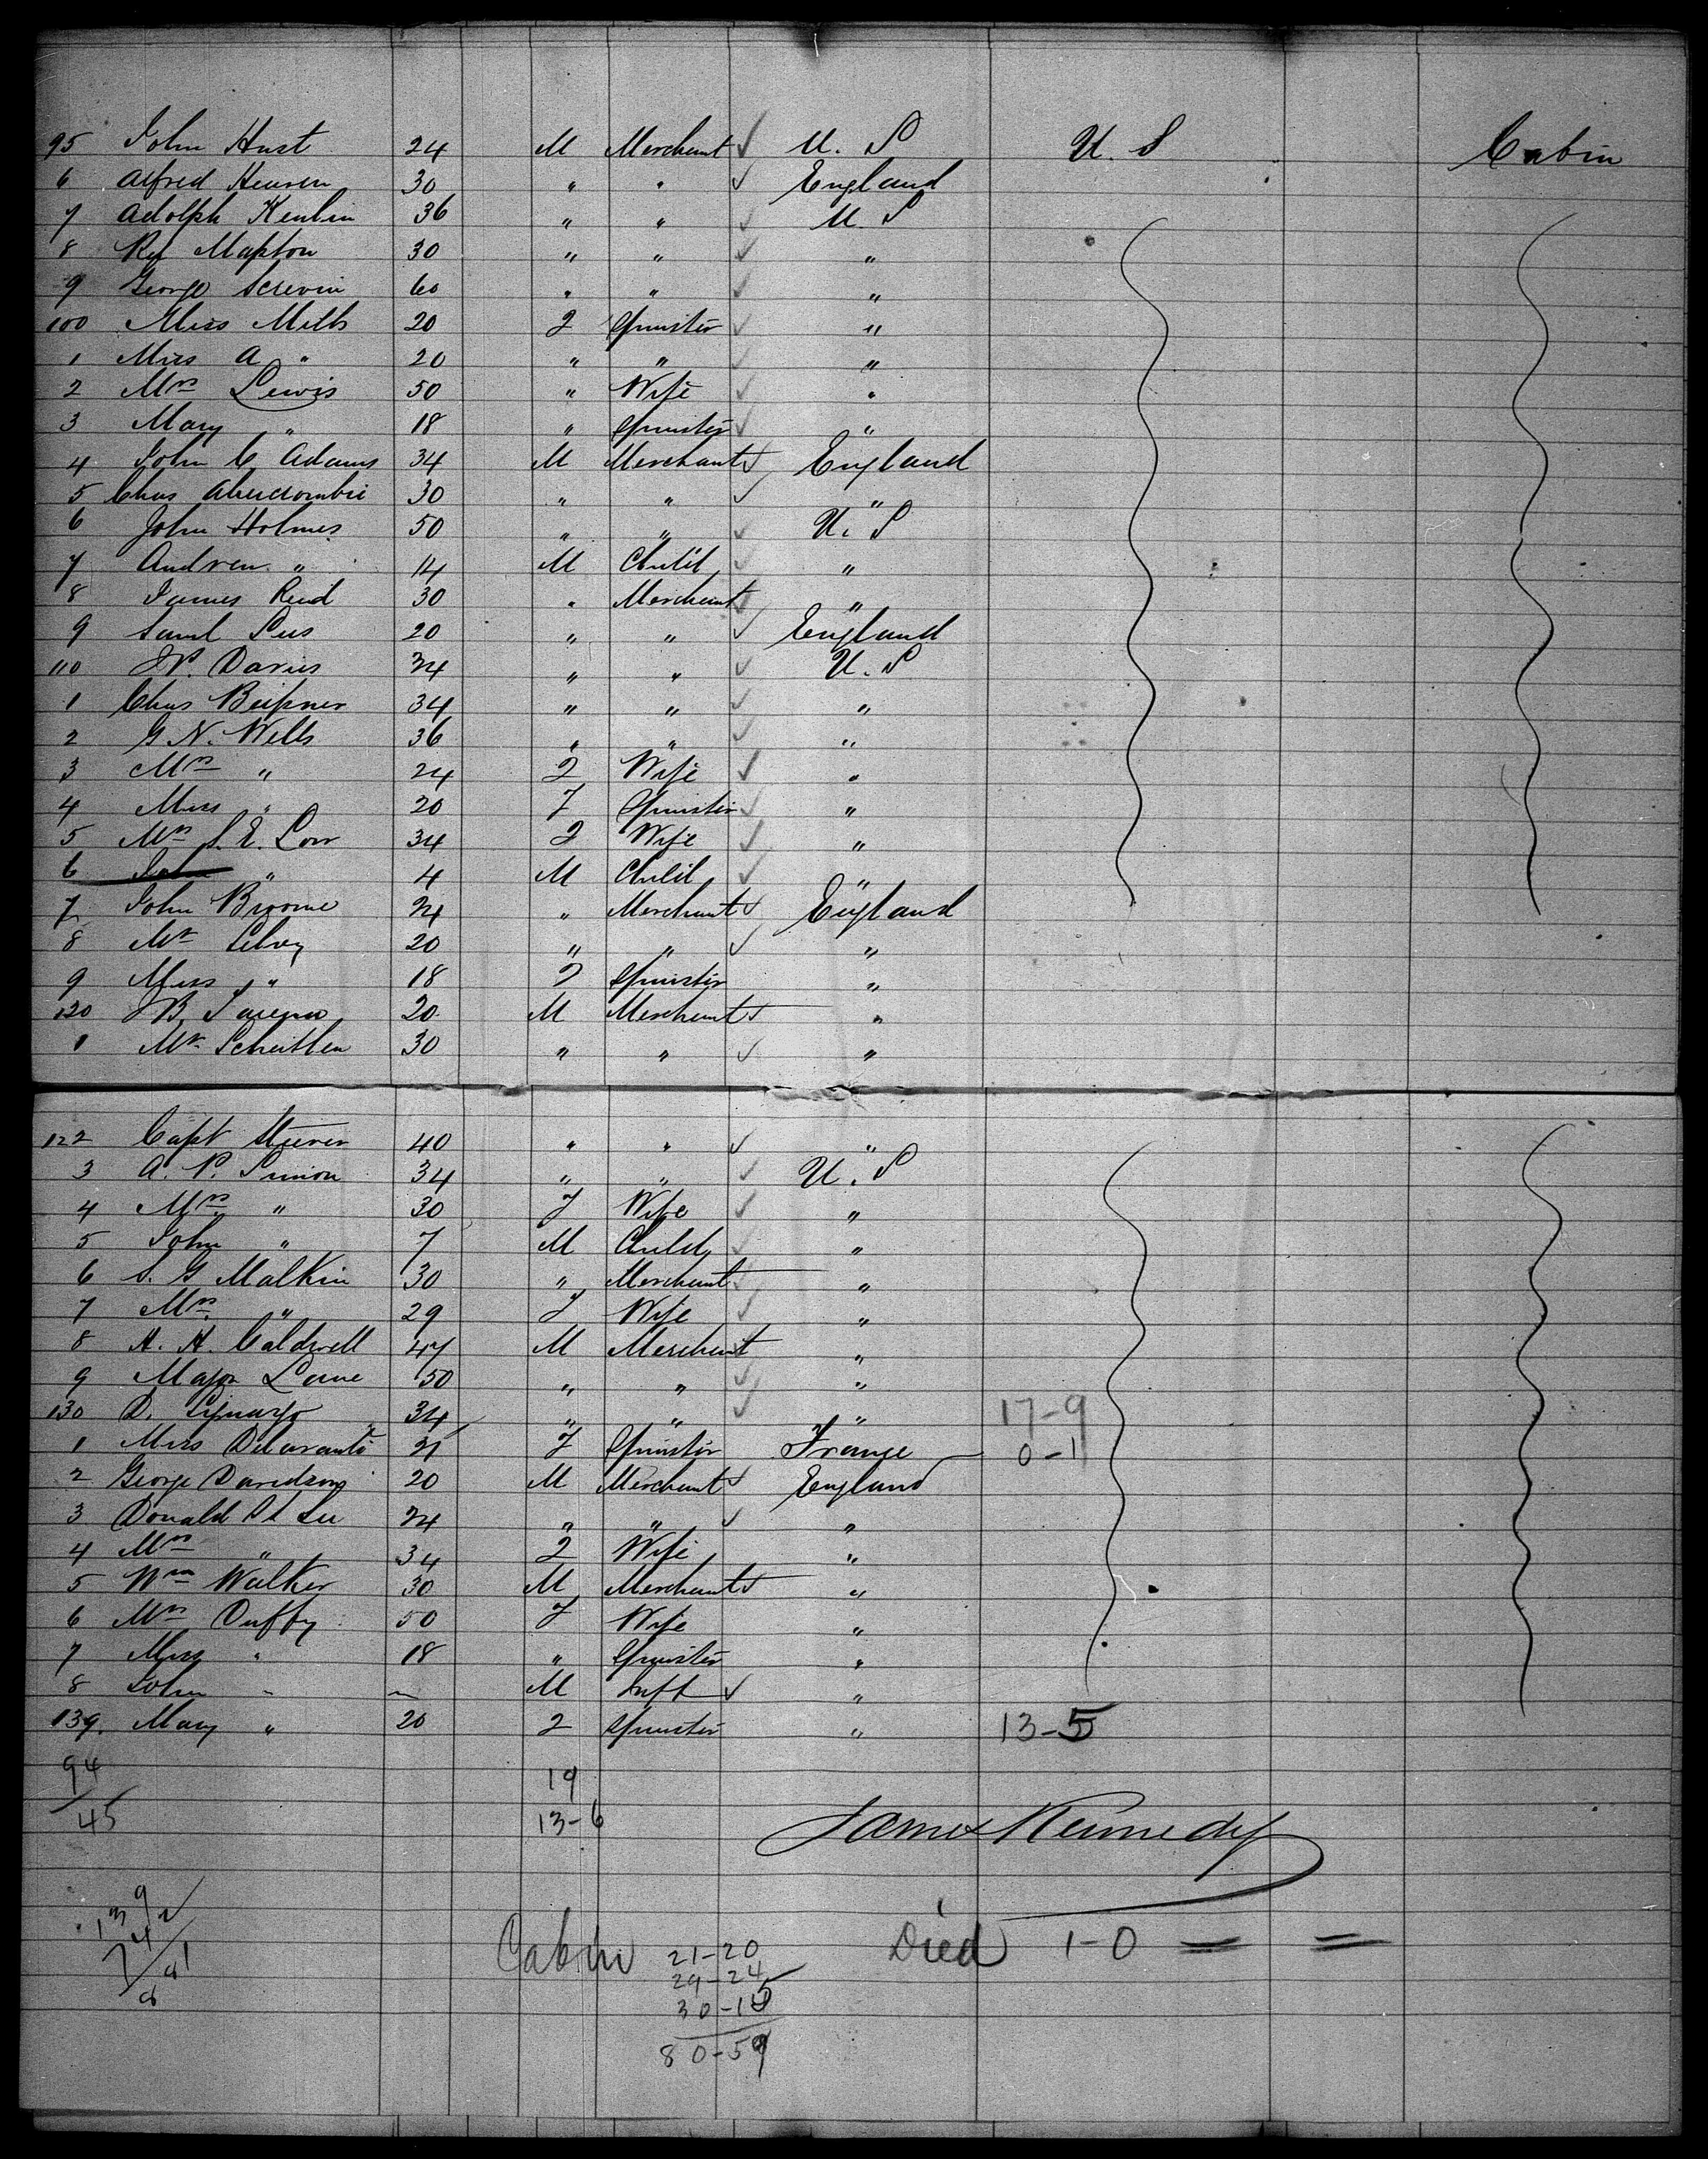 95 John Hust 24 M Merchant ✓ U. S U. S Cabin
6 Alfred 30 " " ✓ England
7 Adolph 36 " " ✓ U. S
8 30 " " ✓ "
9 George Screvin 60 " " ✓ "
100 Miss Mills 20 F Spinster ✓ "
1 Miss A " 20 " " ✓ "
2 Mrs Lewis 50 " Wife ✓ "
3 Mary " 18 " Spinster ✓ "
4 John C Adams 34 M Merchant ✓ England
5 Chas Abercrombie 30 " " ✓ "
6 John Holmes 50 " " ✓ U. S
7 Andrew " 14 M Child ✓ "
8 James Reid 30 " Merchant ✓ "
9 Saml 20 " " ✓ England
110 Davies 34 " " ✓ U. S
1 Chas 34 " " ✓ "
2 G. N. Wells 36 " " ✓ "
3 Mrs " 24 F Wife ✓ "
4 Miss " 20 F Spinster ✓ "
5 Mrs S. E. Low 34 F Wife ✓ "
6 John " 4 M Child ✓ "
7 John Broome 24 " Merchant ✓ England
8 Mr 20 " " ✓ "
9 Miss " 18 F Spinster "
120 20 M Merchant ✓ "
1 Mr 30 " " ✓ "
122 Capt 40 " " ✓ "
3 A. P. 34 " " ✓ U. S
4 Mrs " 30 F Wife ✓ "
5 John " 7 M Child ✓ "
6 S. G Malkin 30 " Merchant ✓ "
7 Mrs " 29 F Wife ✓ "
8 H. H. Caldwell 47 M Merchant "
9 Major Lane 50 " " ✓ "
130 D. 34 " " ✓ " 17-9
1 Miss 21 F Spinster France 0-1
2 George Davidson 20 M Merchant ✓ England
3 Donald 24 " " ✓ "
4 Mrs " 34 F Wife "
5 Wm Walker 30 M Merchant ✓ "
6 Mrs Duffy 50 F Wife "
7 Miss " 18 " Spinster "
8 John " M Inft ✓ "
139. Mary " 20 F Spinster " 13-5
94 19
45 13-6
James Kennedy
139
Cabin 21-20 Died 1-0 = =
29-24
30-15
80-59